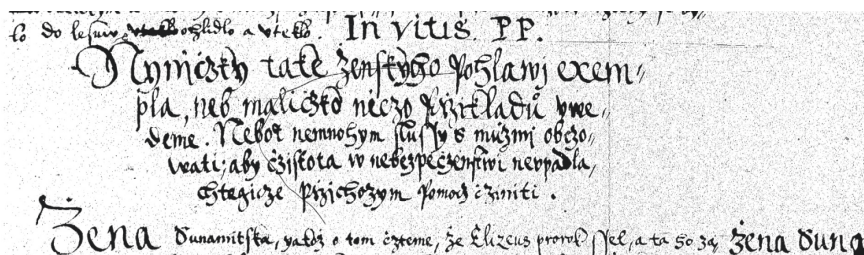 lo do lesuw, a vteklo. In vitis PP.
Nyničzky take ženskyho Pohlawj exem=
pla, neb maličzko nieczo Przikladů vwe,
deme. Nebot nemnohym slussy s mužmi obczo,
wati, aby čzistota w nebezpečzenstwi nevpadla,
chtegicze Przichozym Pomocz čziniti.
Žena Sunamitska, yakož o tom čzteme, že Elizeus prorok ssel, a ta ho za, žena Suna